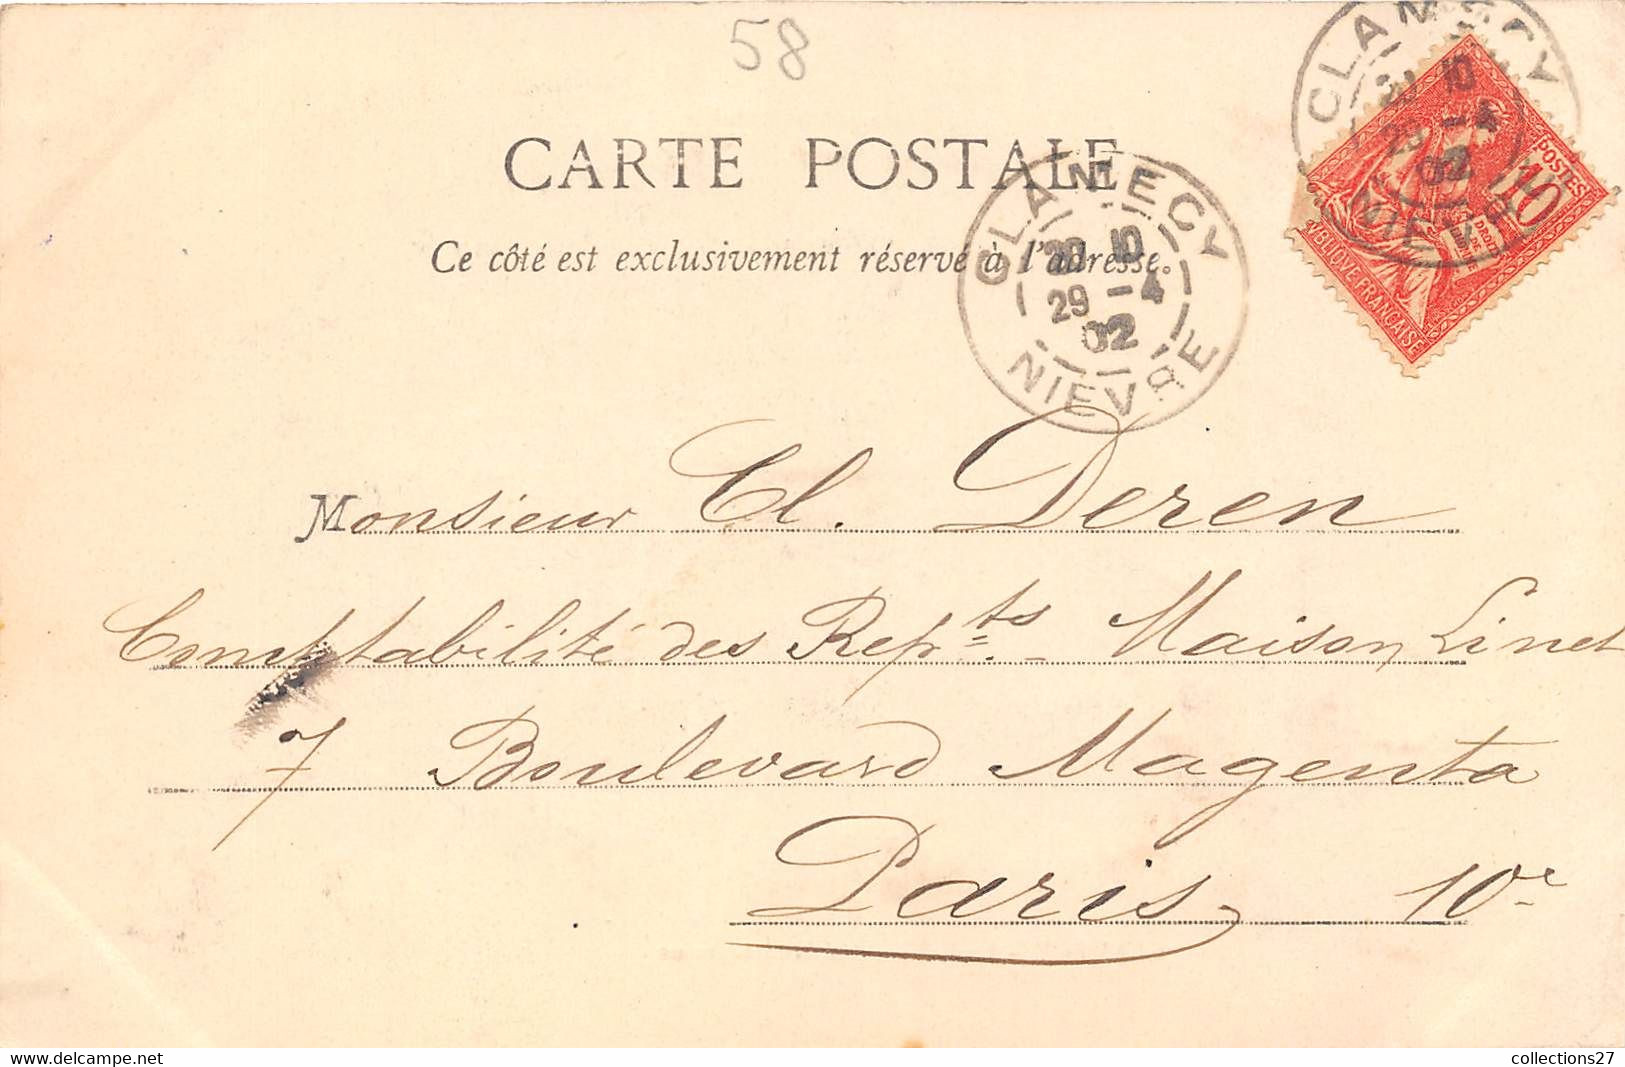 58
CARTE POSTALE
Ce côté est exclusivement réservé à l'adresse.
CLAMECY
20 10
29 -4
02
NIEVRE
CLAMECY
10
29 -4
02
NIEVRE
POSTES
10
DROITS
DE
RÉPUBLIQUE FRANÇAISE
Monsieur Cl. Deren
Comptabilité des Repts. Maison Linet
7 Boulevard Magenta
Paris 10e
collections27